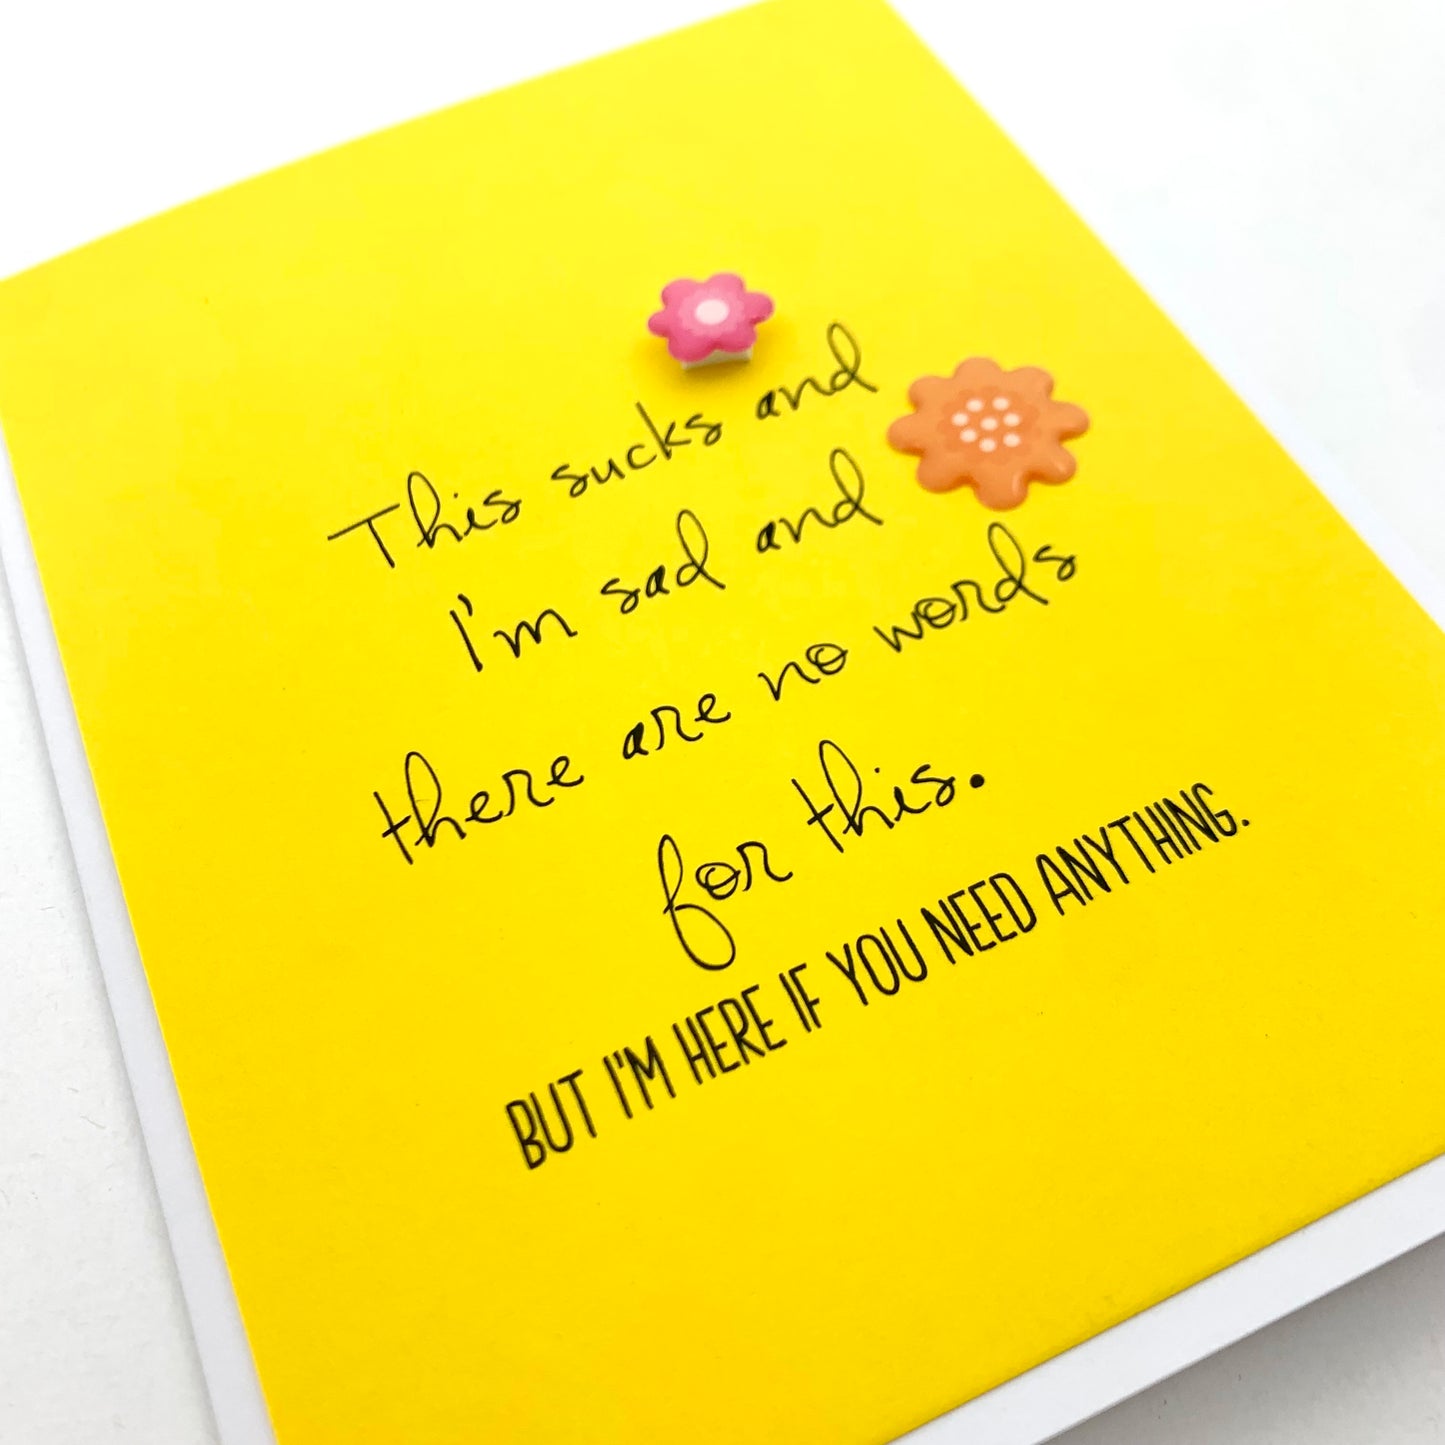 This sucks and
I'm sad and
there are no words
for this.
BUT I'M HERE IF YOU NEED ANYTHING.